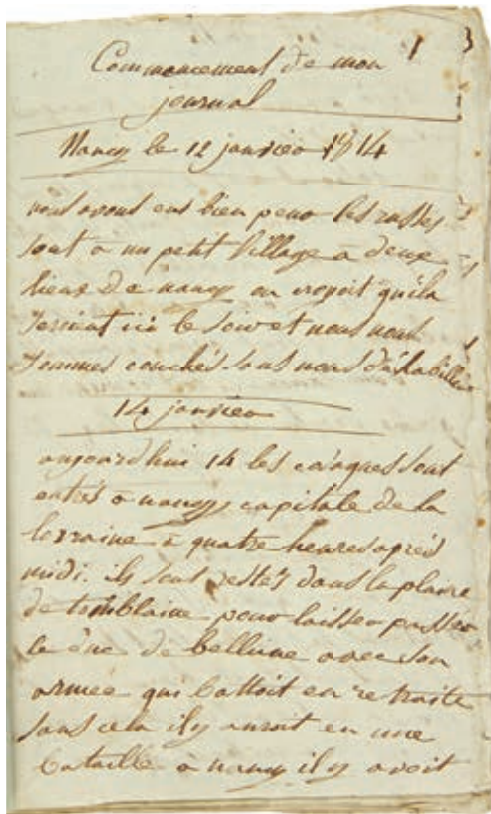 1 3
Commencement de mon
journal
Nancy le 12 janvier 1814
nous avons eus bien peur les russes
sont a un petit village a deux
lieux de nancy on croyoit qu'ils
seroient ici le soir et nous nous
sommes couchés sans nous déshabiller
14 janvier
aujourdhui 14 les cosaques sont
entrés a nancy capitale de la
lorraine a quatre heures après
midi. ils sont restés dans la plaine
de tomblaine pour laisser passer
le duc de bellune avec son
armee qui battoit en retraite
sans cela il y auroit eu une
bataille a nancy il y avoit